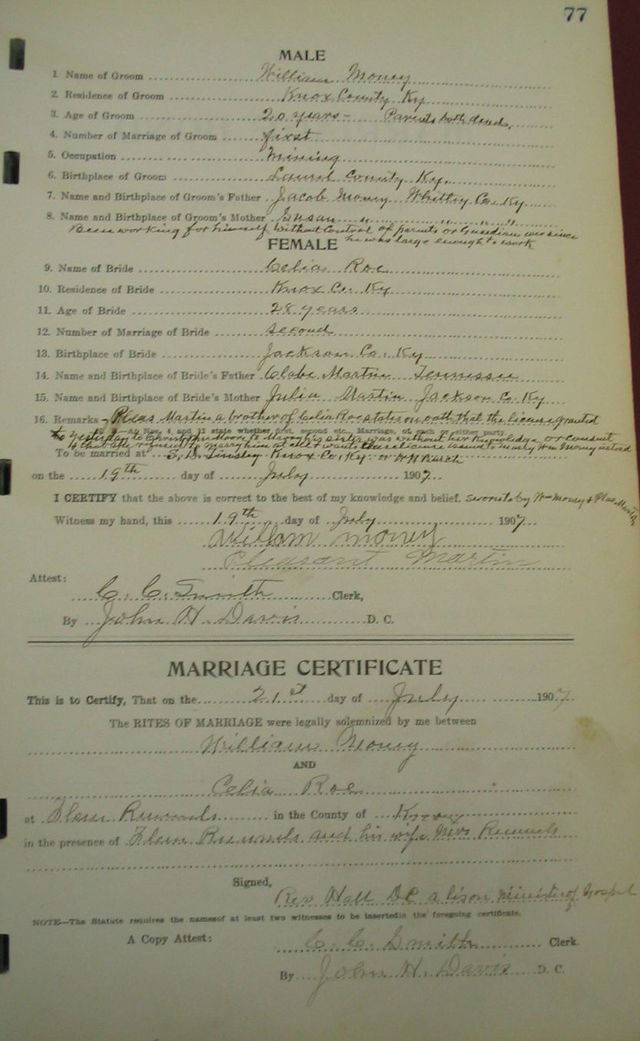 77
MALE
1. Name of Groom William Money
2. Residence of Groom Knox County Ky
3. Age of Groom 20 years - Parents both dead.
4. Number of Marriage of Groom first
5. Occupation Mining
6. Birthplace of Groom Laurel County Ky.
7. Name and Birthplace of Groom's Father Jacob Money Whitley Co. Ky
8. Name and Birthplace of Groom's Mother Susan " " " "
Been working for himself without Control of parents or Guardian ever since
he was large enough to work
FEMALE
9. Name of Bride Celia Roe
10. Residence of Bride Knox Co. Ky
11. Age of Bride 28 years
12. Number of Marriage of Bride second
13. Birthplace of Bride Jackson Co. Ky
14. Name and Birthplace of Bride's Father Clabe Martin Tennessee
15. Name and Birthplace of Bride's Mother Julia Martin Jackson Co Ky
16. Remarks - Pleas Martin a brother of Celia Roe states on oath that the license granted
yesterday to Moore to Marry his sister was without her Knowledge or consent
to marry Wm Money instead
To be married at Knox Co. Ky.
on the 19th day of July 1907
I CERTIFY that the above is correct to the best of my knowledge and belief. sworn to by Wm Money & Pleas Martin
Witness my hand, this 19th day of July 1907
William Money
Pleasant Martin
Attest:
C. C. Smith Clerk,
By John H. Davis D. C.
MARRIAGE CERTIFICATE
This is to Certify, That on the 21st day of July 1907
The RITES OF MARRIAGE were legally solemnized by me between
William Money
AND
Celia Roe
at Flem Runnels in the County of Knox
in the presence of Flem Runnels and his wife Mrs Runnels
Signed,
Rev Hall minister of Gospel
NOTE—The Statute requires the names of at least two witnesses to be inserted in the foregoing certificate.
A Copy Attest: C. C. Smith Clerk.
By John H. Davis D. C.